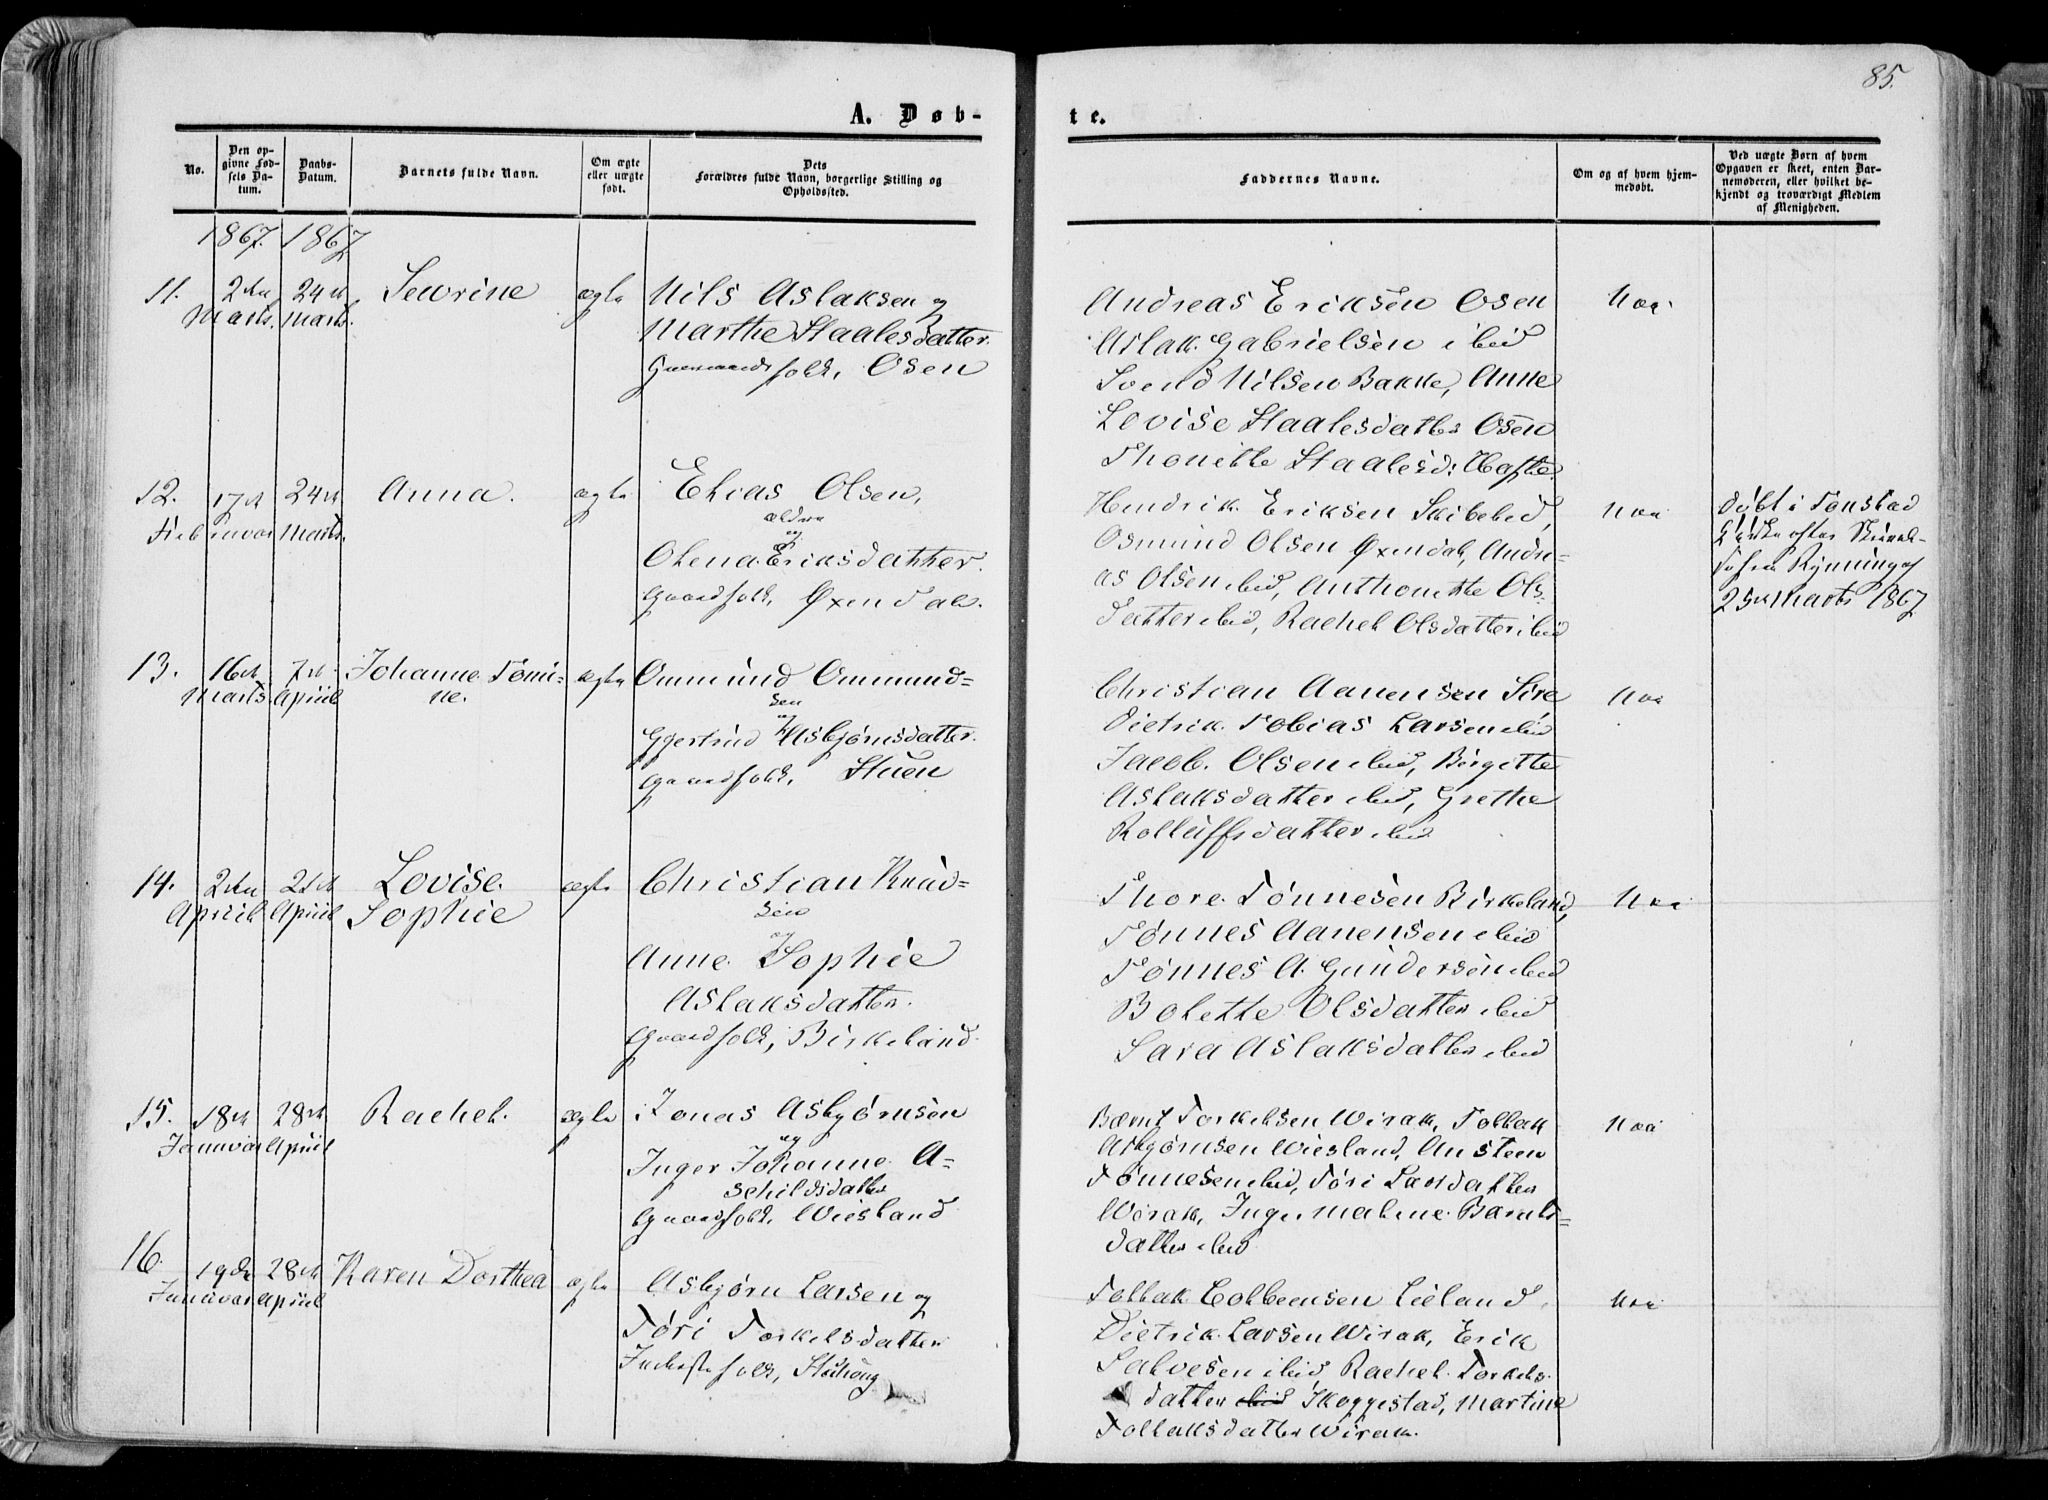 85.
A. Døb-
te.
No.
Den op-
givne Fød-
sels Da-
tum.
Daabs-
Datum.
Barnets fulde Navn.
Om ægte
eller uægte
født.
Dets
Forældres fulde Navn, borgerlige Stilling og
Opholdssted.
Faddernes Navne.
Om og af hvem hjem-
medøbt.
Ved uægte Børn af hvem
Opgaven er skeet, enten Bar-
nemoderen, eller hvilket be-
kjendt og troværdigt Medlem
af Menigheden.
1867. 1867
11.
2den
Marts.
24de
Marts.
Sewrine
ægte
Nils Aslaksen og
Marthe Staalesdatter.
folk, Osen
Andreas Eriksen Osen
Aslak Gabrielsen ibid
Svend Nilsen Bakke, Anne
Lovise Staalesdatter Osen
Thonette Staalesd:
Nei
12.
17de
Februar
24de
Marts.
Anna.
ægte
Elias Olsen,
ældre
og
Olena Eriksdatter.
Gaardfolk, Øxendal.
Hendrik Eriksen Skibelid,
Osmund Olsen Øxendal, Andre-
as Olsen ibid, Anthonette Ols-
datter ibid, Rachel Olsdatter ibid
Nei
Døbt i Tonstad
Kirke efter
25de Marts 1867
13.
16de
Marts.
7de
April
Johanne Tomi-
ne.
ægte
Ommund Ommund-
sen
og
Gjertrud Asbjørnsdatter.
Gaardfolk, Stuen
Christian Aanensen Sire
Dietrik Tobias Larsen ibid
Jacob Olsen ibid, Birgitte
Aslaksdatter ibid, Grethe
Rolluffsdatter ibid
Nei
14.
2den
April
21de
April
Lovise
Sophie
ægte
Christian Knud-
sen
og
Anne Sophie
Aslaksdatter.
Gaardfolk, Birkeland.
Thore Tønnesen Birkeland,
Tønnes Aanensen ibid
Tønnes A. Gundersen ibid
Bolette Olsdatter ibid
Sara Aslaksdatter ibid
Nei
15.
18de
Januar
28de
April
Rachel.
ægte
Jonas Asbjørnsen
og
Inger Johanne A-
schildsdatter
Gaardfolk, Wiesland
Bærnt Torkelsen Wirak, Tollak
Asbjørnsen Wiesland, Ansteen
Tønnesen ibid, Tøri Larsdatter
Wirak, Inger Malene Bærnts-
datter ibid
Nei
16.
19de
Januar
28de
April
Karen Dorthea
ægte
Asbjørn Larsen og
Tøri Torkelsdatter
Inderstefolk,
Tollak Colbeensen Lieland,
Dietrik Larsen Wirak, Erik
Salvesen ibid, Rachel Torkels-
datter ibid Skoggestad, Martine
Tollaksdatter Wirak.
Nei